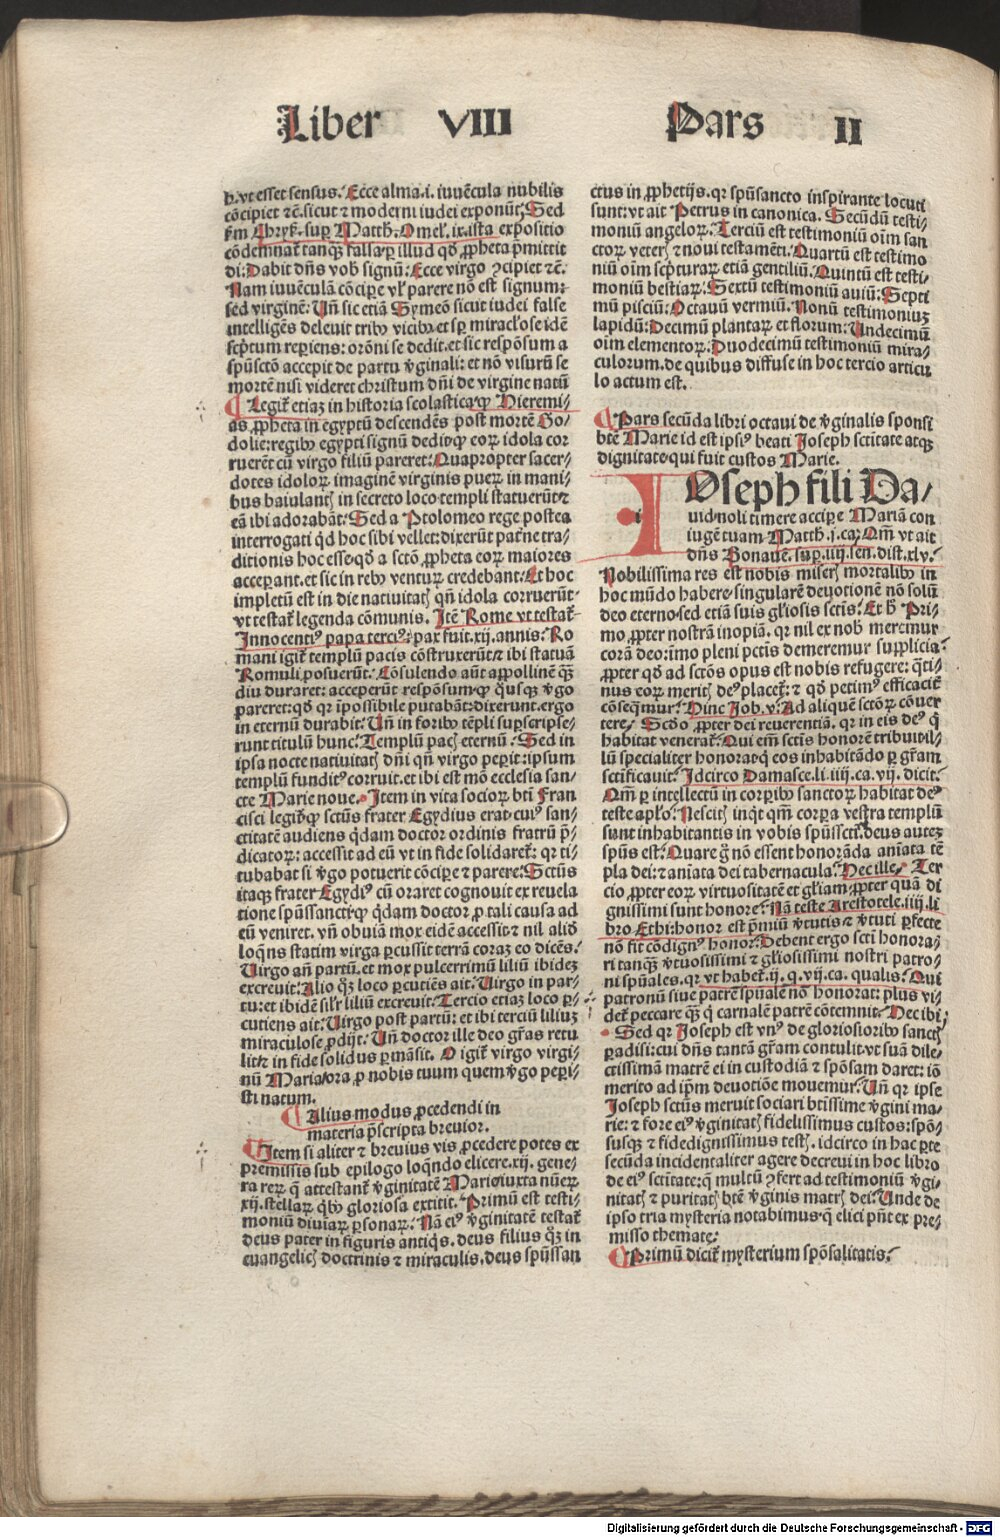 Liber VIII Pars II
h. vt esset sensus. Ecce alma .i. iuuēcula nubilis
cōcipiet ⁊c̄. sicut ⁊ moderni iudei exponūt. Sed
ẜm Chryẜ. suꝑ Matth. Omeł. ix. ista expositio
cōdemnat᷑ tanq̄ꝫ falsa. ꝑ illud qd̓ ꝓpheta p̄mittit
di: Dabit dn̄s vob̓ signū: Ecce virgo ↄcipiet ⁊c̄.
Nam iuuēculā cōciꝑe vł parere nō est signum:
sed virginē: Vn̄ sic etiā Symeō sicut iudei false
intelligēs deleuit tribꝰ vicibꝰ. et sꝑ miracłose idē
scp̄tum reꝑiens: orōni se dedit. et sic respōsum a
spūsctō accepit de partu v̓ginali: et nō visurū se
mortē nisi videret christum dn̄i de virgine natū
¶ Legit᷑ etiaꝫ in historia scolastica. ꝙ Hieremi⸗
as ꝓpheta in egyptū descendēs post mortē Go⸗
dolie: regibꝰ egypti signū dedit. ꝙ eoꝝ idola cor
ruerēt cū virgo filiū pareret: Quapropter sacer⸗
dotes idoloꝝ imaginē virginis pueꝝ in mani⸗
bus baiulantꝭ in secreto loco templi statuerūt ⁊
eā ibi adorabāt: Sed a Ptolomeo rege postea
interrogati qd hoc sibi vellet: dixerūt pat̓ne tra⸗
ditionis hoc esse. qd̓ a sctō ꝓpheta eoꝝ maiores
acceꝑant. et sic in rebꝰ venturꝭ credebant. Et hoc
impletū est in die natiuitatꝭ qn̄ idola corruerūt.
vt testat᷑ legenda cōmunis. Itē Rome vt testat᷑
Innocentiꝰ papa terciꝰ: pax fuit .xij. annis. Ro
mani igit᷑ templū pacis cōstruxerūt. ⁊ ibi statuā
Romuli posuerūt. Cōsulendo aūt appollinē q̄ꝫ
diu duraret: acceperūt respōsum. ꝙ qͥusqꝫ v̓go
pareret: qd̓ qꝛ īpossibile putabāt: dixerunt. ergo
in eternū durabit. Vn̄ in foribꝰ tēpli suꝑscripse⸗
runt titulū hunc. Templū pacꝭ eternū. Sed in
ipsa nocte natiuitatꝭ dn̄i qn̄ virgo peꝑit: ipsum
templū funditꝰ corruit. et ibi est mō ecclesia san⸗
cte Marie noue. Item in vita socioꝝ bti Fran
cisci legit᷑. ꝙ sctūs frater Egydius erat. cuiꝰ san⸗
ctitatē audiens qͥdam doctor ordinis fratrū p̄⸗
dicatoꝝ: accessit ad eū vt in fide solidaret᷑: qꝛ ti⸗
tubabat si v̓go potuerit cōciꝑe ⁊ parere. Sctūs
itaqꝫ frater Egydiꝰ cū oraret cognouit ex reuela
tione spūssancti. ꝙ qͥdam doctor ꝓ tali causa ad
eū veniret. vn̄ obuiā mox eidē accessit: ⁊ nil aliō
loqn̄s statim virga ꝑcussit terrā coraꝫ eo dicēs.
Uirgo an̄ partū. et mox pulcerrimū liliū ibideꝫ
excreuit. Alio qͦꝫ loco ꝑcutiēs ait. Uirgo in par⸗
tu: et ibidē sil̓r liliū excreuit. Tercio etiaꝫ loco ꝑ⸗
cutiens ait: Uirgo post partū: et ibi terciū liliuꝫ
miraculose ꝓdijt: Vn̄ doctor ille deo grā̄s retu
lit. ⁊ in fide solidus ꝑmāsit. O igit᷑ virgo virgi⸗
nū Maria. ora ꝓ nobis tuum quem v̓go peꝑi⸗
sti natum.
¶ Alius modus ꝓcedendi in
materia p̄scripta breuior.
¶ Item si aliter ⁊ breuius vis ꝓcedere potes ex
premissis sub epilogo loqn̄do elicere .xij. gene⸗
ra reꝝ q̄ attestant᷑ v̓ginitatē Marie. iuxta nūeꝝ
xij. stellaꝝ qͥbꝰ gloriosa extitit. Primū est testi⸗
moniū diuinaꝝ ꝑsonaꝝ. Nā eiꝰ v̓ginitatē testat᷑
deus pater in figuris antiqͥs. deus filius qͦꝫ in
euangelicꝭ doctrinis ⁊ miraculis. deus spūssan
ctus in ꝓphetijs. qꝛ spūsancto inspirante locuti
sunt: vt ait Petrus in canonica. Secūdū testi⸗
moniū angeloꝝ. Terciū est testimoniū oīm san
ctoꝝ veterꝭ ⁊ noui testamēti. Quartū est testimo
niū oīm scp̄turaꝝ etiā gentiliū. Quintū est testi⸗
moniū bestiaꝝ. Sextū testimoniū auiū: Septi
mū pisciū: Octauū vermiū. Nonū testimoniuꝫ
lapidū: Decimū plantaꝝ et florum: Undecimū
oīm elementoꝝ. Duodecimū testimoniū mira⸗
culorum. de quibus diffuse in hoc tercio articu
lo actum est.
¶ Pars secūda libri octaui de v̓ginalis sponsi
btē Marie id est ipsiꝰ beati Joseph sctitate atqꝫ
dignitate. qui fuit custos Marie.
IOseph fili Da⸗
uid noli timere acciꝑe Mariā con
iugē tuam. Matth. j. ca. Qm̄ vt ait
dn̄s Bonauē. suꝑ .iiij. sen. dist. xlv.
Nobilissima res est nobis miserꝭ mortalibꝰ in
hoc mūdo habere. singularē deuotionē nō solū
deo eterno. sed etiā suis gl̓iosis sctīs. Et h̓ Pri⸗
mo ꝓpter nostrā inopiā. qꝛ nil ex nob̓ meremur
corā deo: īmo pleni pctīs demeremur supplicia.
ꝓpter qd̓ ad sctōs opus est nobis refugere: q̄ti⸗
nus eoꝝ meritꝭ deꝰ placet᷑: ⁊ qd̓ petimꝰ efficacit̓
cōseqͥmur. Hinc Job .v. Ad aliquē sctōꝝ cōuer
tere. Scd̓o ꝓpter dei reuerentiā. qꝛ in eis deꝰ qͥ
habitat venerat᷑. Qui em̄ sctīs honorē tribuit. il⸗
lū specialiter honorat. qͥ eos inhabitādo ꝑ gr̄am
sctificauit. Idcirco Damasce. li. iiij. ca. vij. dicit.
Qm̄ ꝑ intellectū in corꝑibꝰ sanctoꝝ habitat deꝰ
teste apło. Nescitꝭ inqͥt qm̄ corꝑa vestra templū
sunt inhabitantis in vobis spūssctī. deus auteꝫ
spūs est. Quare g̊ nō essent honorāda aniata tē
pla dei: ⁊ aniata dei tabernacula. Hec ille. Ter
cio ꝓpter eoꝝ virtuositatē et gl̓iam. ꝓpter quā di
gnissimi sunt honore. Nā teste Arestotele .iiij. li
bro Ethi: honor est p̄miū v̓tutis. ⁊ v̓tuti ꝑfecte
nō fit cōdignꝰ honor. Debent ergo sctī honora⸗
ri tanq̄ꝫ v̓tuosissimi ⁊ gl̓iosissimi nostri patro⸗
ni spūales. qꝛ vt habet᷑ .ij. q. vij. ca. qualis. Qui
patronū siue patrē spūalē nō honorat: plus vi⸗
det᷑ peccare q̄ꝫ qͥ carnalē patrē cōtemnit. Hec ibi.
Sed qꝛ Joseph est vnꝰ de gloriosioribꝰ sanctꝭ
ꝑadisi: cui dn̄s tantā gr̄am contulit. vt suā dile⸗
ctissimā matrē ei in custodiā ⁊ spōsam daret: iō
merito ad ip̄m deuotiōe mouemur. Vn̄ qꝛ ipse
Joseph sctūs meruit sociari btīssime v̓gini ma⸗
rie: ⁊ fore eiꝰ v̓ginitatꝭ fidelissimus custos: spō⸗
susqꝫ ⁊ fidedignissimus testꝭ. idcirco in hac ꝑte
secūda incidentaliter agere decreui in hoc libro
de eiꝰ sctitate: q̄ multū ↄfert ad testimoniū v̓gi⸗
nitatꝭ ⁊ puritatꝭ btē v̓ginis matrꝭ dei. Unde de
ipso tria mysteria notabimus. q̄ elici pn̄t ex pre⸗
misso themate.
¶ Primū dicit᷑ mysterium spōsalitatis.
Digitalisierung gefördert durch die Deutsche Forschungsgemeinschaft - DFG